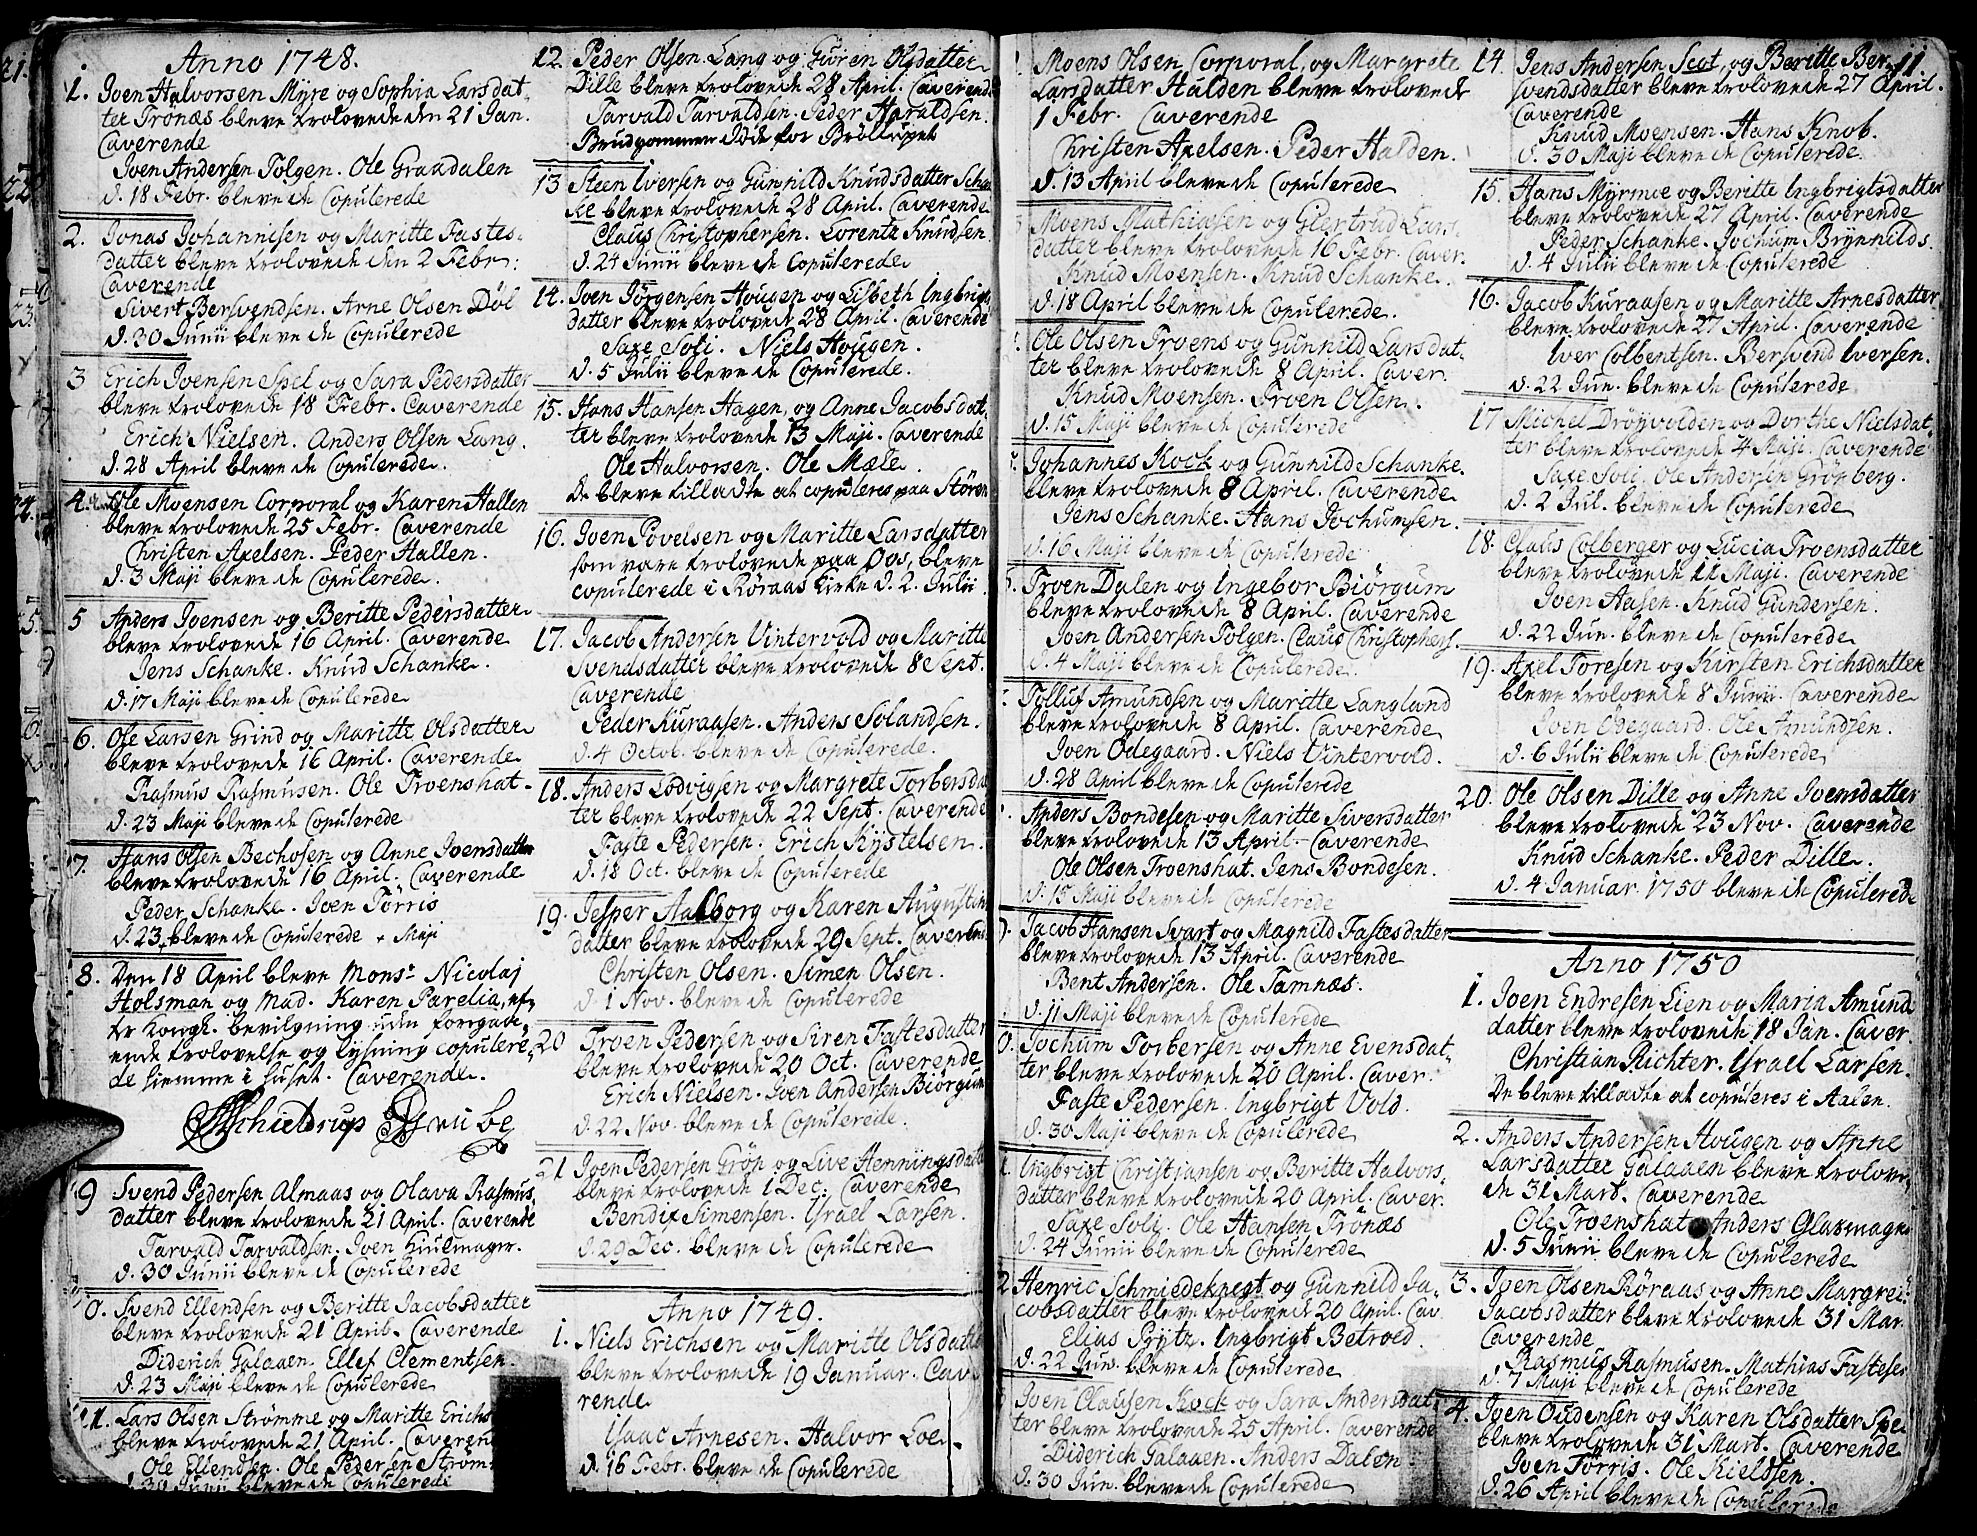 Anno 1748.
1. Joen Halvorsen Myre og Sophia Larsdat-
ter Tronæs bleve trolovede den 21 Jan.
Caverende
Joen Andersen Tolgen. Ole Graadalen
d. 18 Febr. bleve de Copulerede
2. Jonas Johannisen og Maritte Fastes-
datter bleve trolovede den 2 Febr:
Caverende
Sivert Bersvendsen. Arne Olsen Döl
d. 30 Junii bleve de Copulerede
3 Erich Joensen Spel og Sara Pedersdatter
bleve trolovede 18 Febr. Caverende
Erich Nielsen. Anders Olsen Lang.
d. 28 April bleve de Copulerede.
4. Ole Moensen Corporal og Karen Hallen
bleve trolovede 25 Febr. Caverende
Christen Axelsen. Peder Hallen.
d. 3 Maji bleve de Copulerede.
5 Anders Joensen og Beritte Pedersdatter
bleve trolovede 16 April. Caverende
Jens Schanke. Knud Schanke.
d. 17 Maji bleve de Copulerede
6. Ole Larsen Grind og Maritte Olsdatter
bleve trolovede 16 April. Caverende
Rasmus Rasmusen. Ole Troenshat-
d. 23 Maji bleve de Copulerede
7. Hans Olsen Bechosen og Anne Joensdatter
bleve trolovede 16 April. Caverende
Peder Schanke. Joen Törris
d. 23 bleve de Copulerede + Maji
8. Den 18 April bleve Monsr Nicolaj
Holsman og Mad. Karen Parelia, ef-
ter kongl. bevilgning uden foregaa-
ende trolovelse og lysning copulere-
de hiemme i huset. Caverende.
Schieldrup Grube
9 Svend Pedersen Almaas og Olava Rasmus
datter bleve trolovede 21 April. Caverende
Tarvald Tarvaldsen. Joen Hiulmager.
d. 30 Junii bleve de Copulerede
0. Svend Ellendsen og Beritte Jacobsdatter
bleve trolovede 21 April. Caverende
Diderich Galaaen. Ellef Clementsen.
d. 23 Maji bleve de Copulerede
11. Lars Olsen Strømme og Maritte Erichs
bleve trolovede 21 April. Caveren
Ole Ellendsen. Ole Pedersen Strøm
d. 30 Junii bleve de Copulerede
12. Peder Olsen Lang og Guren Olsdatter
Dille bleve trolovede 28 April. Caverend
Tarvald Tarvaldsen. Peder Haraldsen.
Brudgommen döde for Brölluppet
13 Steen Iversen og Gunnild Knudsdatter Schan
ke bleve trolovede 28 April. Caverende
Claus Christophersen. Lorentz Knudsen
d. 24 Junii bleve de Copulerede
14. Joen Jörgensen Hougen og Lisbeth Ingbrigts
datter bleve trolovede 28 April. Caverende
Saxe Soli. Niels Hougen.
d. 5 Julii bleve de Copulerede.
15. Hans Hansen Hagen, og Anne Jacobsdat,
ter bleve trolovede 13 Maji. Caverende
Ole Halvorsen. Ole Mæle.
De bleve tilladte at copuleres paa Stören
16. Joen Povelsen og Maritte Larsdatter
som vare trolovede paa Oos, bleve
copulerede i Röraas kirke d. 2. Julii
17. Jacob Andersen Vintervold og Maritte
Svendsdatter bleve trolovede 8 Sept.
Caverende
Peder Kuraasen. Anders Solandsen.
d. 4 Octob. bleve de Copulerede.
18. Anders Lodvigsen og Margrete Torbersda
ter bleve trolovede 22 Sept. Caverende
Faste Pedersen. Erich Kystelsen.
d. 18 Oct. bleve de Copulerede
19. Jesper Aalborg og Karen Augustin
datter bleve trolovede 29 Sept. Caverende
Christen Olsen. Simen Olsen.
d. 1 Nov. bleve de Copulerede
20 Troen Pedersen og Siren Fastesdatter
bleve trolovede 20 Oct. Caverende
Erich Nielsen. Joen Andersen Biörgum
d. 22 Nov. bleve de Copulerede.
21 Joen Pedersen Gröp og Live Henningsdatte
bleve trolovede 1 Dec. Caverende
Bendix Simensen. Israel Larsen.
d. 29 Dec. bleve de Copulerede
Anno 1749.
1. Niels Erichsen og Maritte Olsdatte
bleve trolovede 19 Januar. Cav
rende
Isaac Arnesen. Halvor Loe.
d. 16 Febr. bleve de Copulerede
Moens Olsen Corporal, og Margrete
Larsdatter Halden bleve trolovede
1 Febr. Caverende
Christen Axelsen. Peder Halden.
d. 13 April bleve de Copulerede
Moens Mathiasen og Giertrud Lars-
datter bleve trolovede 16 Febr. Caver.
Knud Moensen. Knud Schanke.
d. 18 April bleve de Copulerede.
Ole Olsen Troens og Gunnild Larsdat-
ter bleve trolovede 8 April. Caver.
Knud Moensen. Troen Olsen.
d. 15 Maji bleve de Copulerede
Johannes Kock og Gunnild Schanke.
bleve trolovede 8 April. Caverende
Jens Schanke. Hans Jochumsen.
d. 16 Maji bleve de Copulerede
Troen Dalen og Ingebor Biörgum
bleve trolovede 8 April. Caverende
Joen Andersen Tolgen. Claus Christophers.
d. 4 Maji bleve de Copulerede.
Tolluf Amundsen og Maritte Langland
bleve trolovede 8 April. Caverende
Joen Odegaard. Niels Vintervold.
d. 28 April bleve de Copulerede
Anders Bondesen og Maritte Siversdatter
bleve trolovede 13 April. Caverende
Ole Olsen Troenshat. Jens Bondesen.
d. 15 Maji bleve de Copulerede
Jacob Hansen Svart og Magnild Fastesdatter
bleve trolovede 13 April. Caverende
Bent Andersen. Ole Tamnæs.
d. 11 Maji bleve de Copulerede
0. Jochum Torbersen og Anne Evensdat-
ter bleve trolovede 20 April. Caver.
Faste Pedersen. Ingbrigt Vold.
d. 30 Maji bleve de Copulerede
1. Ingbrigt Christjansen og Beritte Halvors,
datter bleve trolovede 20 April. Caver.
Saxe Soli. Ole Hansen Trönæs
d. 24 Junii bleve de Copulerede
2. Henric Schmiedeknegt og Gunnild Ja-
cobsdatter bleve trolovede 20 April. Cav
Elias Prytz. Ingbrigt Betroed.
d. 22 Jun. bleve de Copulerede
Joen Clausen Kock og Sara Andersdat-
ter bleve trolovede 25 April. Caverende
Diderich Galaaen. Anders Dalen
d. 30 Jun. bleve de Copulerede
11
14. Jens Andersen Scot, og Beritte Ber-
svendsdatter bleve trolovede 27 April.
Caverende
Knud Moensen. Hans Knob.
d. 30 Maji bleve de Copulerede
15. Hans Myrmoe og Beritte Ingbrigtsdatter
bleve trolovede 27 April. Caverende
Peder Schanke. Jochum Brynnilds.
d. 4 Julii bleve de Copulerede
16. Jacob Kuraasen og Maritte Arnesdatter.
bleve trolovede 27 April. Caverende
Iver Colbentsen. Bersvend Iversen.
d. 22 Jun. bleve de Copulerede
17 Michel Dröyvolden og Dorthe Nielsdat-
ter bleve trolovede 4 Maji. Caverende
Saxe Soli. Ole Andersen Grönberg.
d. 2 Jul. bleve de Copulerede
18. Claus Colberger og Lucia Troensdatter
bleve trolovede 11 Maji. Caverende
Joen Aasen. Knud Gundersen.
d. 22 Jun. bleve de Copulerede
19. Axel Toresen og Kirsten Erichsdatter
bleve trolovede 8 Junii. Caverende
Joen Odegaard. Ole Amundsen.
d. 6 Julii bleve de Copulerede
20. Ole Olsen Dille og Anne Joensdatter
bleve trolovede 23 Nov. Caverende
Knud Schanke. Peder Dille.
d. 4 Januar. 1750 bleve de Copulerede
Anno 1750
1. Joen Endresen Lien og Marin Amund
datter bleve trolovede 18 Jan. Caver.
Christian Richter. Israel Larsen.
De bleve tilladte at copuleres i Aalen.
2. Anders Andersen Hougen og Anne
Larsdatter Galaaen bleve trolove-
de 31 Mart. Caverende
Ole Troenshat Anders Glasmager
d. 5 Junii bleve de Copulerede
3. Joen Olsen Röraas og Anne Margrete
Jacobsdatter bleve trolovede 31 Mar.
Caverende
Rasmus Rasmusen. Mathias Fastesen
d. 7 Maji bleve de Copulerede
4. Joen Oudensen og Karen Olsdatter Spel
bleve trolovede 31 Mart. Caverende
Joen Törris. Ole Kieldsen.
d. 26 April bleve de Copulerede